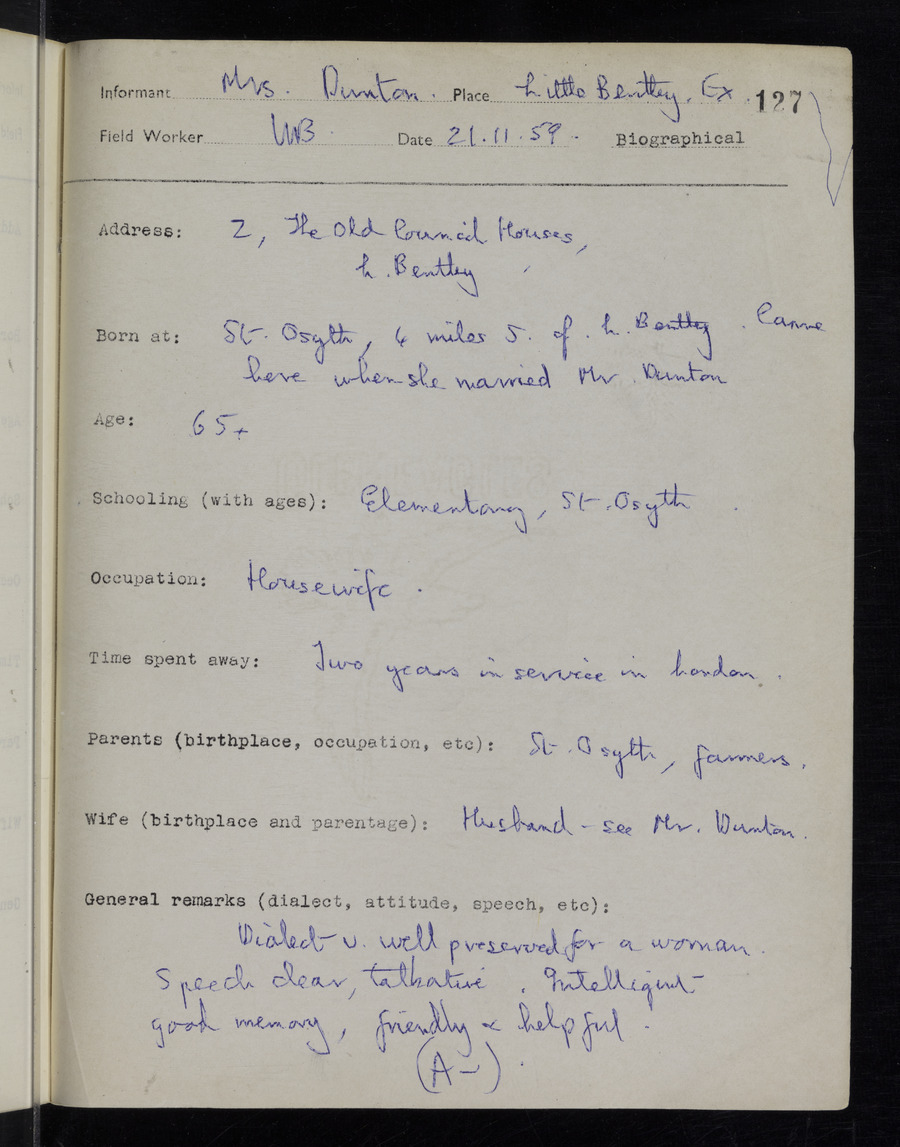 Informant Mrs. Dunton. Place Little Bentley, Ex. 127
Field Worker Date 21.11.59. Biographical
Address: 2, The Old Council Houses,
L. Bentley
Born at: St. Osyth, 4 miles S. of L. Bentley. Came
here when she married Mr. Dunton
Age: 65+
Schooling (with ages): Elementary, St. Osyth
Occupation: Housewife.
Time spent away: Two years in service in London.
Parents (birthplace, occupation, etc): St. Osyth, farmers.
Wife (birthplace and parentage): Husband - see Mr. Dunton.
General remarks (dialect, attitude, speech, etc):
Dialect v. well preserved for a woman.
Speech clear, talkative. Intelligent
good memory, friendly & helpful.
(A-)